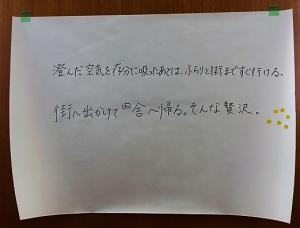 澄んだ空気を存分に吸ったあとは、ふらりと街まですぐ行ける。
街へ出かけて田舎へ帰る。そんな贅沢。